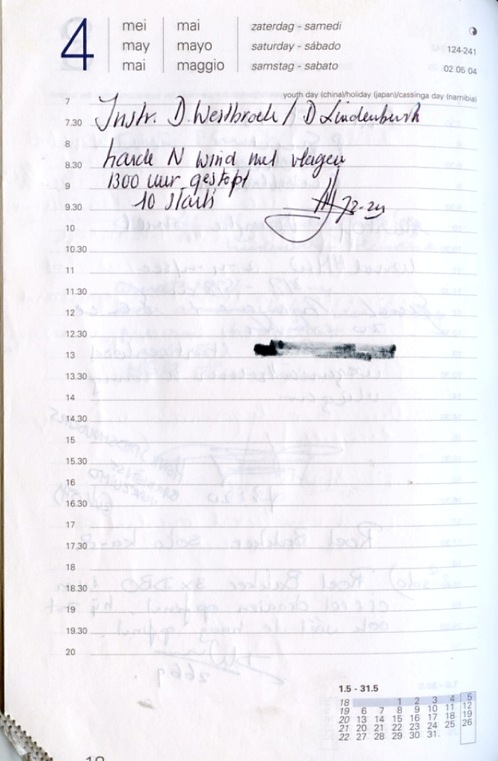 4
mei mai zaterdag - samedi
may mayo saturday - sábado
mai maggio samstag - sabato
124-241
02 05 04
youth day (china)/holiday (japan)/cassinga day (namibia)
7
7.30 Instr. D. Westbroek / D Lindenburgh
8
8.30 harde N wind met vlagen
9 1300 uur gestopt
9.30 10 starts
10
10.30
11
11.30
12
12.30
13
13.30
14
14.30
15
15.30
16
16.30
17
17.30
18
18.30
19
19.30
20
1.5 - 31.5
18 1 2 3 4 5
19 6 7 8 9 10 11 12
20 13 14 15 16 17 18 19
21 20 21 22 23 24 25 26
22 27 28 29 30 31.